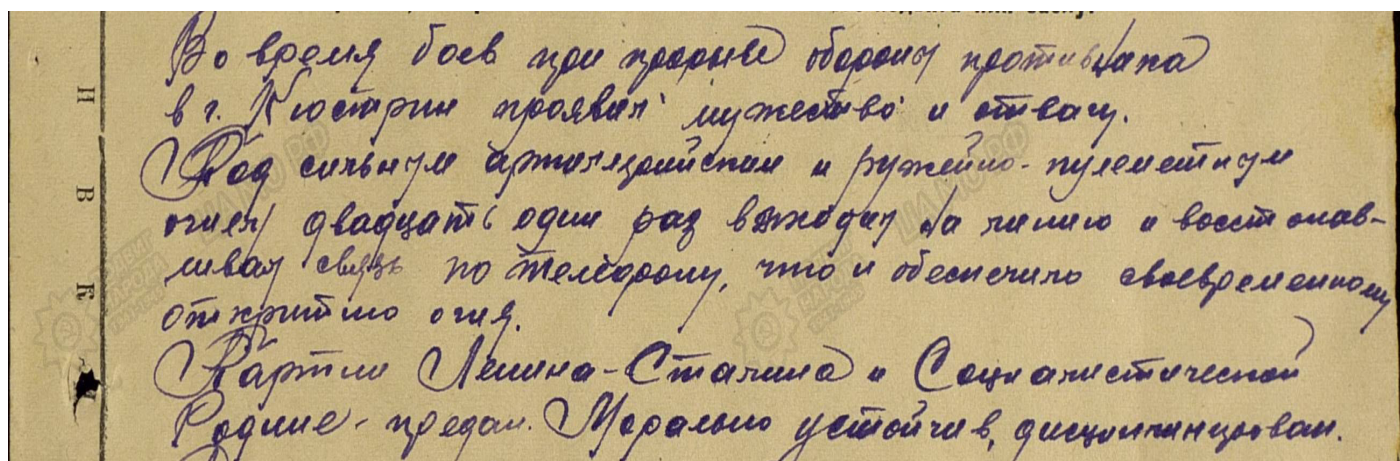 Во время боев при прорыве обороны противника
в г. Кюстрин проявил мужество и отвагу.
Под сильным артиллерийским и ружейно-пулеметным
огнем двадцать один раз выходил на линию и восстонав-
ливал связь по телефону, что и обеспечило своевременному
открытию огня.
Партии Ленина-Сталина и Социалистической
Родине - предан. Морально устойчив, дисциплинирован.